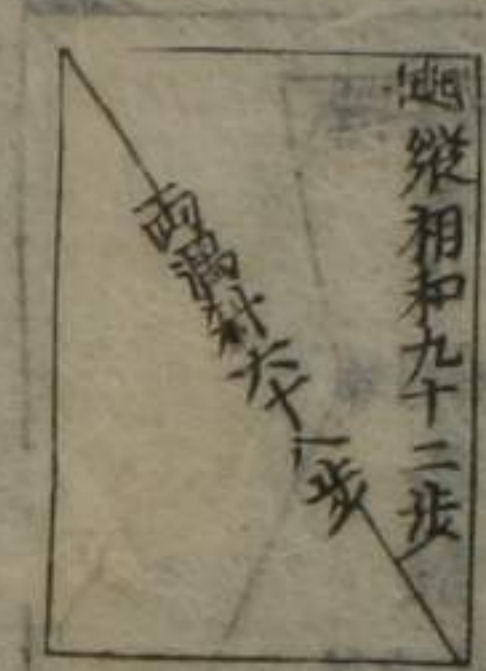 縱相和九十二步
兩隅斜六十八步